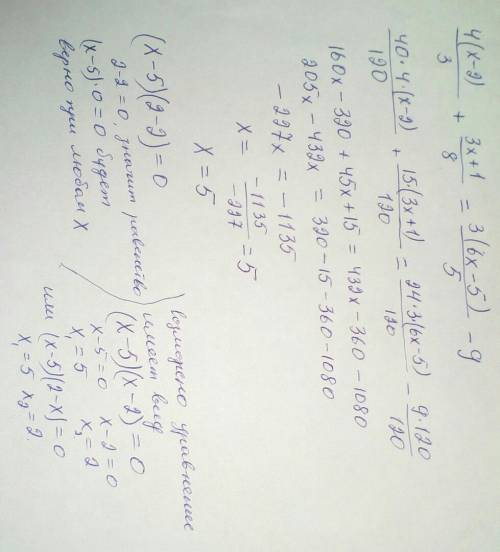 4(x-2)/3 + 3x+1/8 = 3(6x-5)/5 - 9
40·4·(x-2)/120 + 15·(3x+1)/120 = 24·3(6x-5)/120 - 9·120/120
160x - 320 + 45x + 15 = 432x - 360 - 1080
205x - 432x = 320 - 15 - 360 - 1080
- 227x = - 1135
x = -1135/-227 = 5
x = 5
(x-5)(2-2) = 0
2-2=0, значит равенство
(x-5)·0=0 будет
верно при любом x
возможно уравнение
имеет вид
(x-5)(x-2) = 0
x-5=0 x-2=0
x₁=5 x₂=2
или (x-5)(2-x)=0
x₁=5 x₂=2.